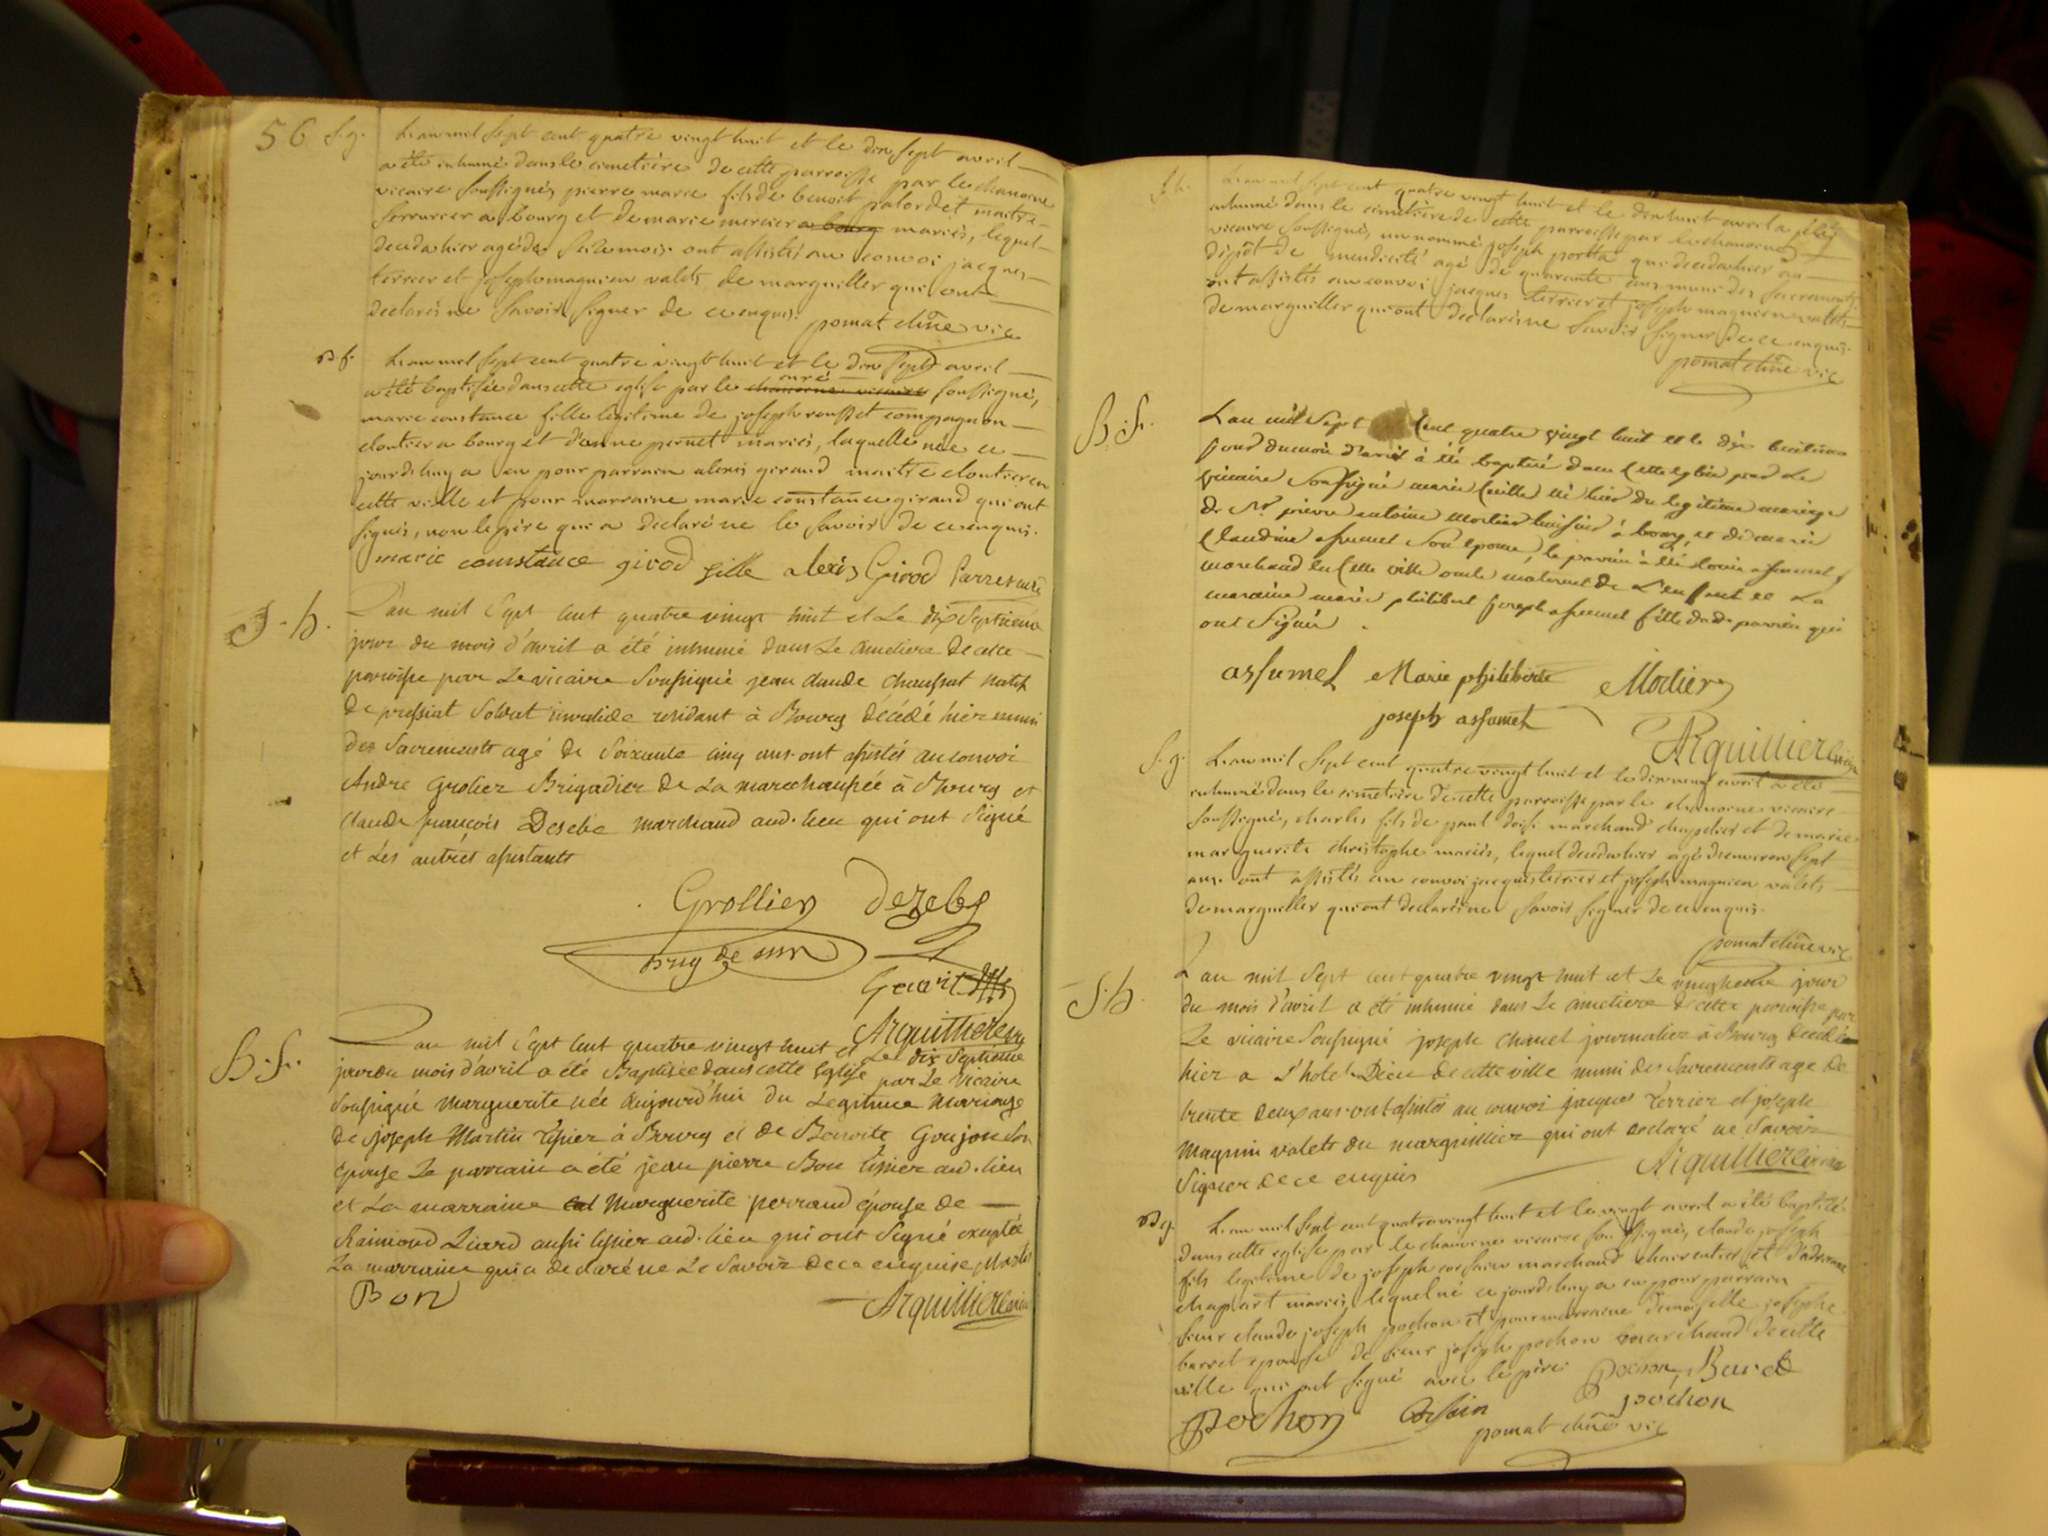 56
S. g.
L'an mil sept cent quatre vingt huit et le dix sept avril
a été inhumé dans le cimetière de cette parroisse par le chanoine
vicaire soussigné, pierre marie fils de benoit palordet maitre
serrurier a bourg et de marie mercier a bourg mariés, lequel
deceda hier agé de seize mois. ont assistés au convoi jacques
terrier et joseph magnien valets de marguiller qui ont
declarés ne savoir signer de ce enquis.
pomat chne vic
B f.
L'an mil sept cent quatre vingt huit et le dix sept avril
a été baptisée dans cette eglise par le chanoine vicaire curé soussigné,
marie constance fille legitime de joseph rousset compagnon
cloutier a bourg et d'anne pernet mariés, laquelle née ce
jourd'huy a eu pour parrain alexis giraud maitre cloutier en
cette ville et pour marraine marie constance giraud qui ont
signés, non le père qui a declaré ne le savoir de ce enquis.
marie constance girod fille alexis Girod
S. h.
L'an mil sept cent quatre vingt huit et Le dix septieme
jour du mois d'avril a été inhumé dans Le cimetiere de cette
paroisse par Le vicaire Soussigné jean claude chaussat natif
De pressiat Soldat invalide residant à Bourg décédé hier muni
des Sacrements agé de Soixante cinq ans. ont assistés au convoi
Andre Grolier Brigadier de La marechaussée à Bourg et
claude françois Desebe marchand aud. lieu qui ont Signé
et Les autres assistants
Grollier Dezebe
puy de
Arquilliere vic
B. f.
L'an mil Sept cent quatre vingt huit et Le dix Septieme
jour du mois d'avril a été Baptisée dans cette Eglise par Le Vicaire
Soussigné Marguerite née aujourd'hui du Legitime Mariage
de joseph Martin tissier à Bourg et de Benoite Goujon son
épouse Le parrain a été jean pierre Bon tissier aud. lieu
et La marraine Marguerite perraud épouse de
Raimond Liard aussi tissier aud. lieu qui ont Signé exceptée
La marraine qui a declaré ne Le Savoir de ce enquise
Bon
Arquilliere vic
S. h.
L'an mil sept cent quatre vingt huit et le dix huit avril a été
inhumé dans le cimetière de cette parroisse par le chanoine
vicaire soussigné, un nommé joseph porta qui deceda hier au
dépôt de mendicité agé de quarante ans muni des sacrements
ont assistés au convoi jacques terrier et joseph magnien valets
de marguiller qui ont declarés ne savoir signer de ce enquis.
pomat chne vic
B. f.
L'an mil Sept Cent quatre vingt huit et le dix huitieme
jour du mois d'avril à été baptisé dans Cette eglise par Le
vicaire Soussigné marie née hier du legitime mariage
de Sr pierre antoine Morlier huissier à bourg, et de marie
Claudine assumel Son épouse, le parrain à été assumel
marchand en Cette ville oncle maternel de L'enfant et La
maraine marie philiberte joseph assumel fille dud. parrain qui
ont Signés.
assumel Marie philiberte
joseph assumel
Arquilliere vic
S. g.
L'an mil sept cent quatre vingt huit et le dix neuf avril a été
inhumé dans le cimetière de cette parroisse par le chanoine vicaire
soussigné, charles fils de paul marchand chapelier et de marie
marguerite christophe mariés, lequel deceda hier agé d'environ sept
ans. ont assistés au convoi jacques terrier et joseph magnien valets
de marguiller qui ont declarés ne savoir signer de ce enquis.
pomat chne vic
S. h.
L'an mil Sept cent quatre vingt huit et Le vingtieme jour
du mois d'avril a été inhumé dans Le cimetiere de cette paroisse par
Le vicaire Soussigné joseph chanel journalier à Bourg décédé
hier a L'hotel Dieu de cette ville muni des Sacrements agé de
trente deux ans. ont assistés au convoi jacques terrier et joseph
Magnin valets du marguillier qui ont declaré ne Savoir
Signer de ce enquis
Arquilliere vic
B g.
L'an mil sept cent quatre vingt huit et le vingt avril a été baptisé
dans cette eglise par le chanoine vicaire soussigné, claude joseph
fils legitime de joseph marchand et
mariés, lequel né ce jourd'huy a eu pour parrain
sieur claude joseph pochon et pour marraine demoiselle josephe
barret epouse de sieur joseph pochon marchand de cette
ville qui ont signé avec le père.
Pochon
pochon
pomat chne vic